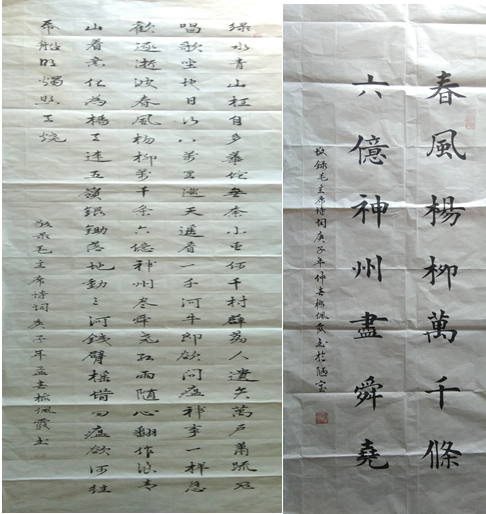 绿水青山枉自多華佗無奈小虫何千村薜荔人遺矢萬戶蕭疏鬼
唱歌坐地日行八萬里巡天遙看一千河牛郎欲問瘟神事一樣悲
歡逐逝波春風楊柳萬千條六億神州盡舜堯紅雨随心翻作浪青
山着意化為橋天連五嶺銀鋤落地動三河鐵臂摇借问瘟欲河往
帋船明燭照天燒
敬录毛主席詩詞庚子年孟春楊佩霞书
春風楊柳萬千條
六億神州盡舜堯
敬録毛主席詩詞庚子年仲春楊佩霞书於陋室